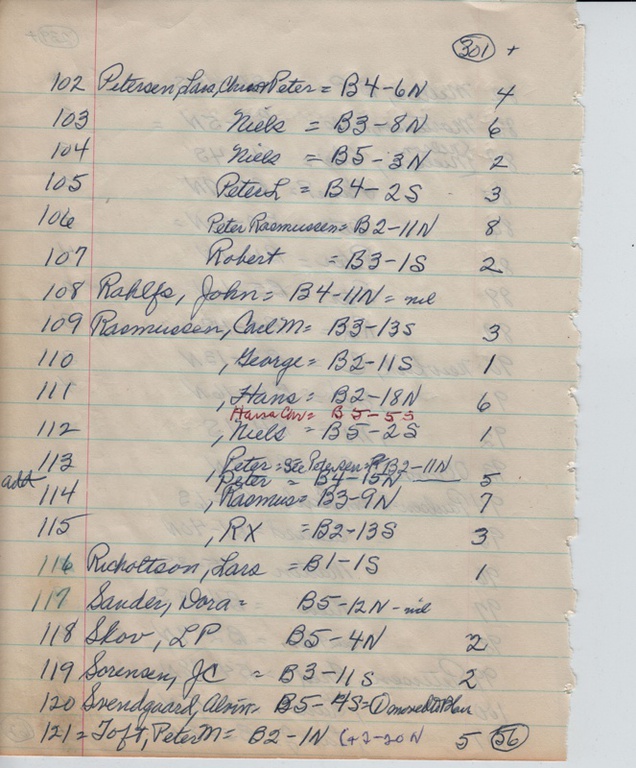 301 +
102 Petersen, Lars, Chris Peter = B4-6N 4
103 Niels = B3-8N 6
104 Niels = B5-3N 2
105 Peter L = B4-2S 3
106 Peter Rasmussen = B2-11N 8
107 Robert = B3-1S 2
108 Rahlfs, John = B4-11N = nil
109 Rasmussen, Carl M = B3-13S 3
110 , George = B2-11S 1
111 , Hans = B2-18N 6
Hans Chr = B5-5S
112 , Niels = B5-2S 1
113 , Peter = See Petersen = P B2-11N
add , Peter = B4-15N 5
114 , Rasmus = B3-9N 7
115 , RX = B2-13S 3
116 Richottson, Lars = B1-1S 1
117 Sander, Dora = B5-12N - nil
118 Skov, LP B5-4N 2
119 Sorensen, JC = B3-11S 2
120 Svendgaard, Alvin = B5-4S =
121 = Toft, Peter M = B2-1N (+2-20N 5 56